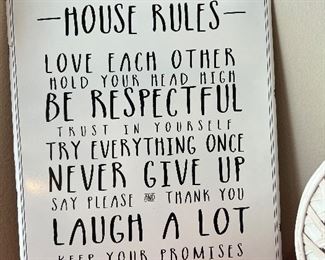 —HOUSE RULES—
LOVE EACH OTHER
HOLD YOUR HEAD HIGH
BE RESPECTFUL
TRUST IN YOURSELF
TRY EVERYTHING ONCE
NEVER GIVE UP
SAY PLEASE AND THANK YOU
LAUGH A LOT
KEEP YOUR PROMISES